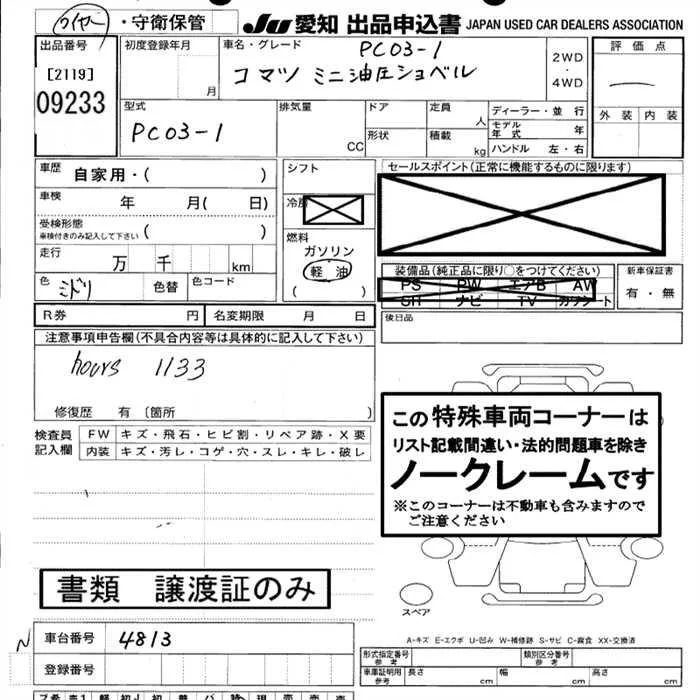 ワイヤー・守衛保管
JU 愛知 出品申込書 JAPAN USED CAR DEALERS ASSOCIATION
出品番号
[2119]
09233
初度登録年月
月
車名・グレード
PC03-1
コマツ ミニ油圧ショベル
2WD
・
4WD
評価点
外装 内装
型式
PC03-1
排気量
CC
ドア
形状
定員
人
積載
kg
ディーラー・並行
モデル年式 年
ハンドル 左・右
車歴
自家用・( )
車検
年 月( 日)
受検形態
車検付きのみ記入して下さい ( )
走行
万 千 km
色 ミドリ 色替 色コード
シフト
冷房
燃料
ガソリン
軽油
( )
セールスポイント(正常に機能するものに限ります)
装備品(純正品に限り○をつけてください)
PS PW エアB AW
SR ナビ TV カワシート
新車保証書
有・無
R券 円 名変期限 月 日
後日品
注意事項申告欄(不具合内容等は具体的に記入して下さい)
hours 1133
修復歴 有〔箇所 〕
検査員記入欄
FW キズ・飛石・ヒビ割・リペア跡・X要
内装 キズ・汚レ・コゲ・穴・スレ・キレ・破レ
この特殊車両コーナーは
リスト記載間違い・法的問題車を除き
ノークレームです
※このコーナーは不動車も含みますので
ご注意ください
書類 譲渡証のみ
スペア
A-キズ E-エクボ U-凹み W-補修跡 S-サビ C-腐食 XX-交換済
N
車台番号 4813
登録番号
形式指定番号
参考
類別区分番号
参考
車庫証明用
参考
長さ cm 幅 cm 高さ cm